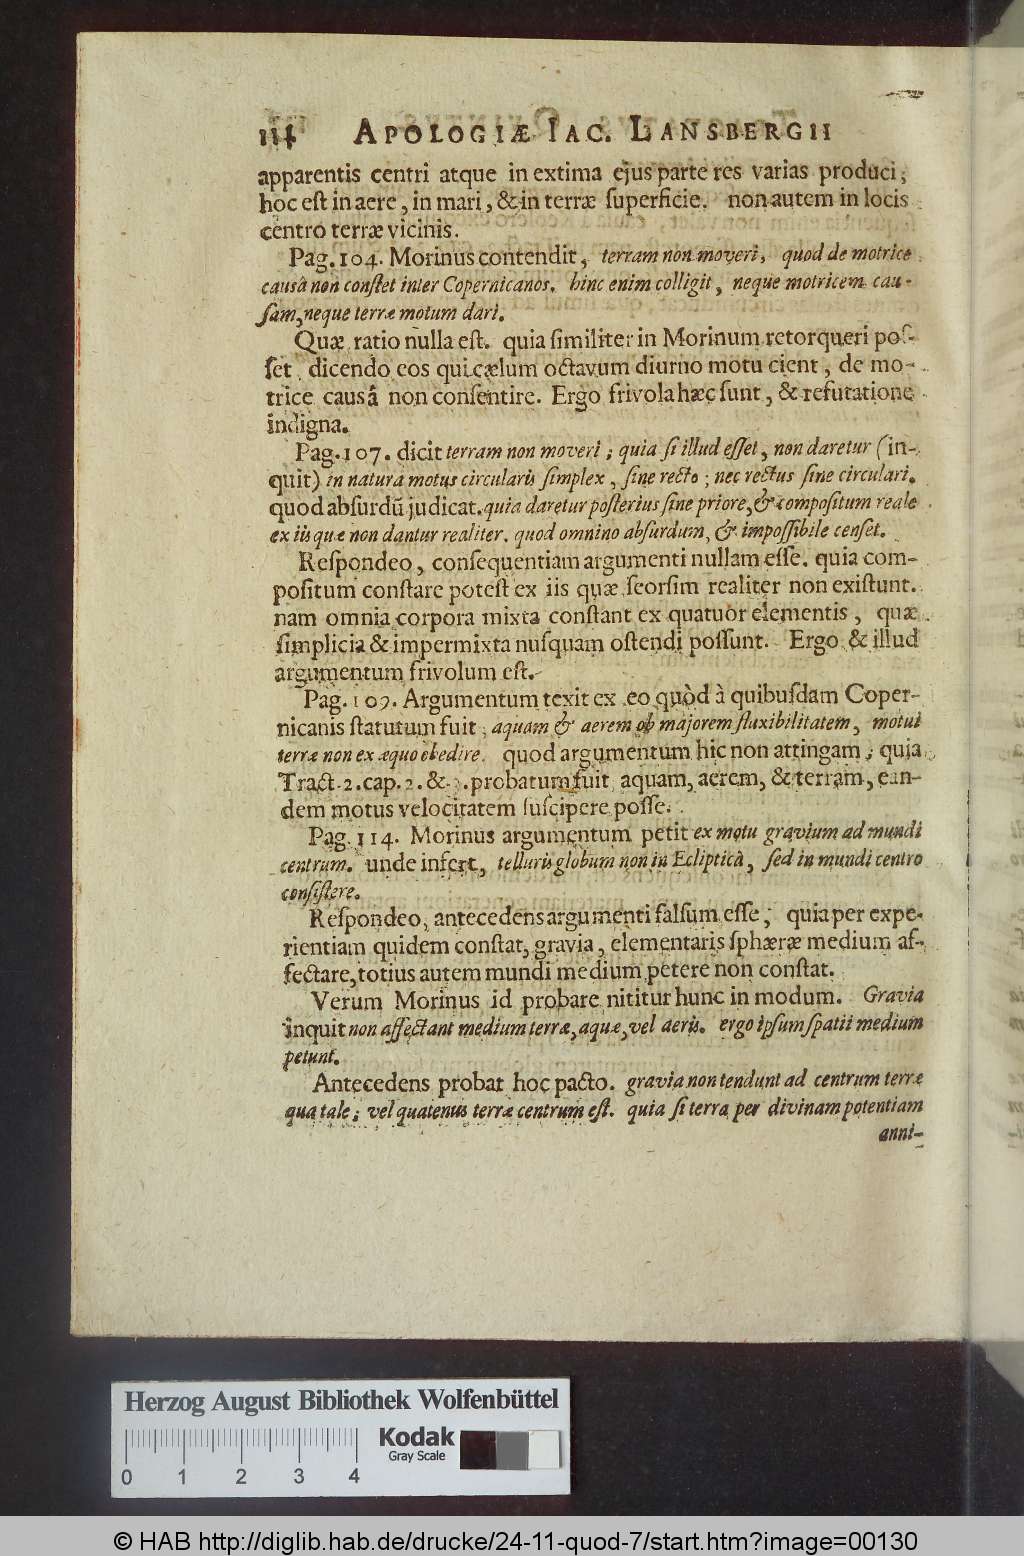 114 APOLOGIÆ IAC. LANSBERGII
apparentis centri atque in extima ejus parte res varias produci,
hoc est in aere, in mari, & in terræ superficie. non autem in locis
centro terræ vicinis.
Pag. 104. Morinus contendit, terram non moveri, quod de motrice
causâ non constet inter Copernicanos. hinc enim colligit, neque motricem cau-
sam, neque terræ motum dari.
Quæ ratio nulla est. quia similiter in Morinum retorqueri pos-
set dicendo eos qui cælum octavum diurno motu cient, de mo-
trice causâ non consentire. Ergo frivola hæc sunt, & refutatione
indigna.
Pag. 107. dicit terram non moveri; quia si illud esset, non daretur (in-
quit) in natura motus circularis simplex, sine recto; nec rectus sine circulari.
quod absurdū judicat. quia daretur posterius sine priore, & compositum reale
ex iis quæ non dantur realiter. quod omnino absurdum, & impossibile censet.
Respondeo, consequentiam argumenti nullam esse. quia com-
positum constare potest ex iis quæ seorsim realiter non existunt.
nam omnia corpora mixta constant ex quatuor elementis, quæ
simplicia & impermixta nusquam ostendi possunt. Ergo & illud
argumentum frivolum est.
Pag. 109. Argumentum texit ex eo quòd à quibusdam Coper-
nicanis statutum fuit, aquam & aerem ob majorem fluxibilitatem, motui
terræ non ex æquo obedire. quod argumentum hic non attingam; quia
Tract. 2. cap. 2. & 3. probatum fuit aquam, aerem, & terram, ean-
dem motus velocitatem suscipere posse.
Pag. 114. Morinus argumentum petit ex motu gravium ad mundi
centrum. unde infert, telluris globum non in Eclipticâ, sed in mundi centro
consistere.
Respondeo, antecedens argumenti falsum esse; quia per expe-
rientiam quidem constat, gravia, elementaris sphæræ medium af-
fectare, totius autem mundi medium petere non constat.
Verum Morinus id probare nititur hunc in modum. Gravia
inquit non affectant medium terræ, aquæ, vel aeris. ergo ipsum spatii medium
petunt.
Antecedens probat hoc pacto. gravia non tendunt ad centrum terræ
qua tale; vel quatenus terræ centrum est. quia si terra per divinam potentiam
anni-
Herzog August Bibliothek Wolfenbüttel
Kodak
Gray Scale
0 1 2 3 4
© HAB http://diglib.hab.de/drucke/24-11-quod-7/start.htm?image=00130